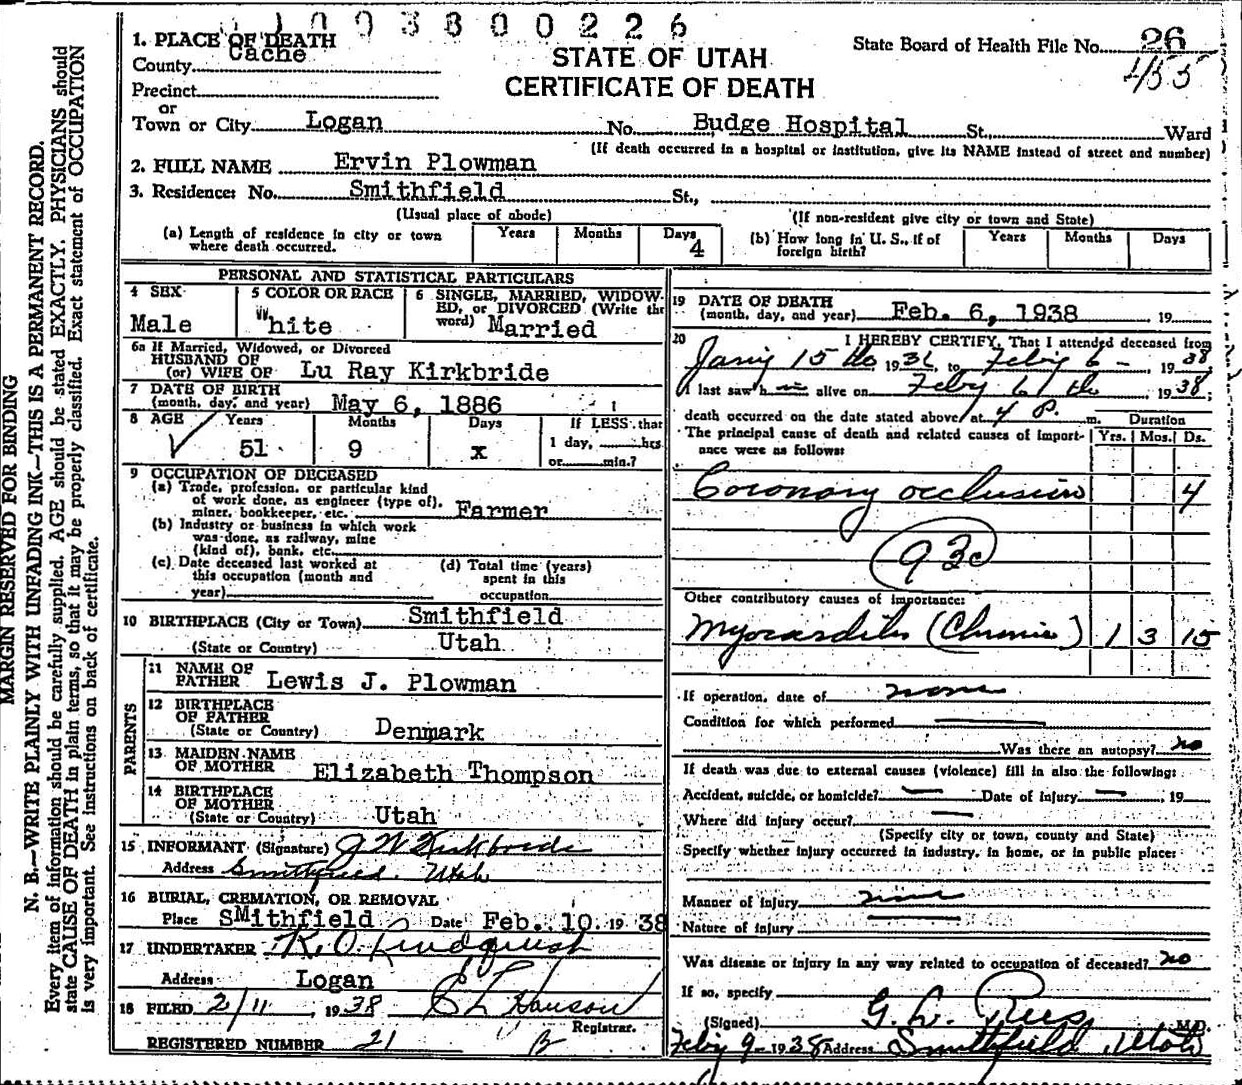 1003800226
1. PLACE OF DEATH
County Cache
STATE OF UTAH
CERTIFICATE OF DEATH
State Board of Health File No. 26
4/55
Precinct
or
Town or City Logan No. Budge Hospital St., Ward
(If death occurred in a hospital or institution, give its NAME instead of street and number)
2. FULL NAME Ervin Plowman
3. Residence: No. Smithfield St.,
(Usual place of abode) (If non-resident give city or town and State)
(a) Length of residence in city or town where death occurred. Years Months Days 4
(b) How long in U. S., if of foreign birth? Years Months Days
PERSONAL AND STATISTICAL PARTICULARS
4 SEX Male
5 COLOR OR RACE White
6 SINGLE, MARRIED, WIDOWED, or DIVORCED (Write the word) Married
6a If Married, Widowed, or Divorced
HUSBAND OF
(or) WIFE OF Lu Ray Kirkbride
7 DATE OF BIRTH
(month, day, and year) May 6, 1886
8 AGE Years 51 Months 9 Days x
If LESS than
1 day, hrs
or min.?
9 OCCUPATION OF DECEASED
(a) Trade, profession, or particular kind
of work done, as engineer (type of),
miner, bookkeeper, etc. Farmer
(b) Industry or business in which work
was done, as railway, mine
(kind of), bank, etc.
(c) Date deceased last worked at
this occupation (month and
year)
(d) Total time (years)
spent in this
occupation
10 BIRTHPLACE (City or Town) Smithfield
(State or Country) Utah
PARENTS
11 NAME OF
FATHER Lewis J. Plowman
12 BIRTHPLACE
OF FATHER
(State or Country) Denmark
13 MAIDEN NAME
OF MOTHER Elizabeth Thompson
14 BIRTHPLACE
OF MOTHER
(State or Country) Utah
15 INFORMANT (Signature) J W Kirkbride
Address Smithfield Utah
16 BURIAL, CREMATION, OR REMOVAL
Place SMithfield Date Feb. 10, 19 38
17 UNDERTAKER K. O. Lindquist
Address Logan
18 FILED 2/11, 1938 Hanson
Registrar.
REGISTERED NUMBER 21
19 DATE OF DEATH
(month, day, and year) Feb. 6, 1938 19
20 I HEREBY CERTIFY, That I attended deceased from
15 th 193 , to Feby 6 - , 19 38
I last saw h im alive on Feby 6 th , 19 38;
death occurred on the date stated above at 4 P. m. Duration
The principal cause of death and related causes of importance were as follows: Yrs. Mos. Ds.
Coronary occlusion 4
93c
Other contributory causes of importance:
Myocarditis (Chronic) 1 3 15
If operation, date of none
Condition for which performed
Was there an autopsy? no
If death was due to external causes (violence) fill in also the following:
Accident, suicide, or homicide? — Date of injury — , 19
Where did injury occur? —
(Specify city or town, county and State)
Specify whether injury occurred in industry, in home, or in public place:
Manner of injury none
Nature of injury
Was disease or injury in any way related to occupation of deceased? no
If so, specify
(Signed) G. L. Rees M.D.
Feby 9 - 1938 Address Smithfield, Utah
MARGIN RESERVED FOR BINDING
N. B.—WRITE PLAINLY WITH UNFADING INK—THIS IS A PERMANENT RECORD.
Every item of information should be carefully supplied. AGE should be stated EXACTLY. PHYSICIANS should
state CAUSE OF DEATH in plain terms, so that it may be properly classified. Exact statement of OCCUPATION
is very important. See instructions on back of certificate.